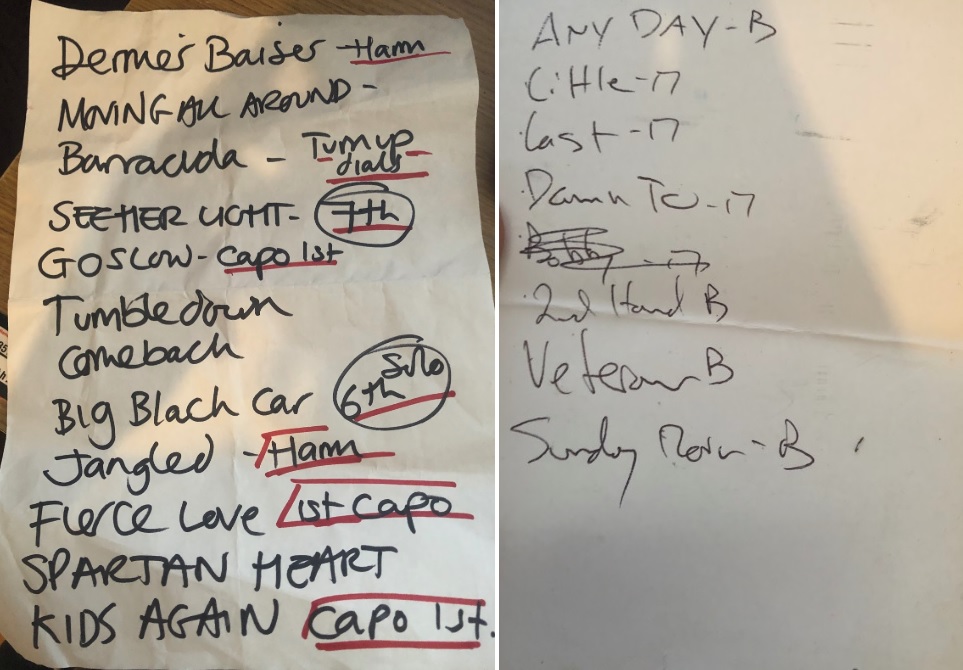 Dernier Baiser - Harm
MOVING ALL AROUND -
Barracuda - Turn up dials
SEE HER LIGHT - 7th
GO SLOW - Capo 1st
Tumbledown
Comeback
Big Black Car 6th Solo
Jangled - Harm
Fierce Love 1st Capo
SPARTAN HEART
KIDS AGAIN Capo 1st.
ANY DAY - B
Little - 17
Last - 17
Damn To - 17
2nd Hand B
Veteran B
Sunday Morn - B